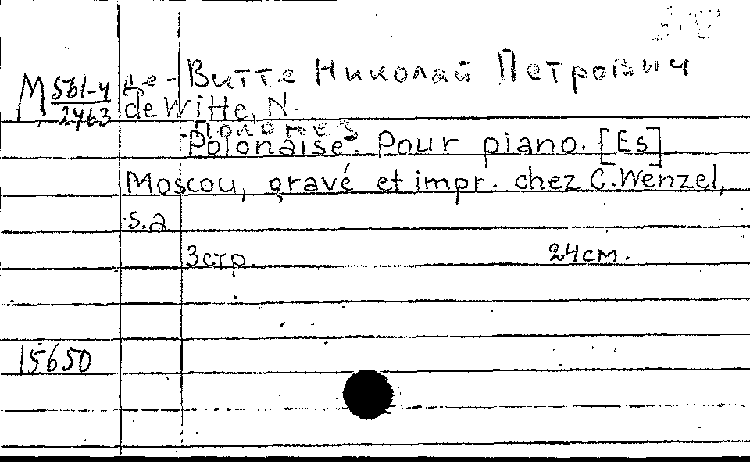 М 561-4/2463
де-Витте Николай Петрович
de Witte, N.
Полонез
Polonaise. Pour piano. [Es]
Moscou, gravé et impr. chez C. Wenzel,
s.a
3 стр. 24 см.
15650